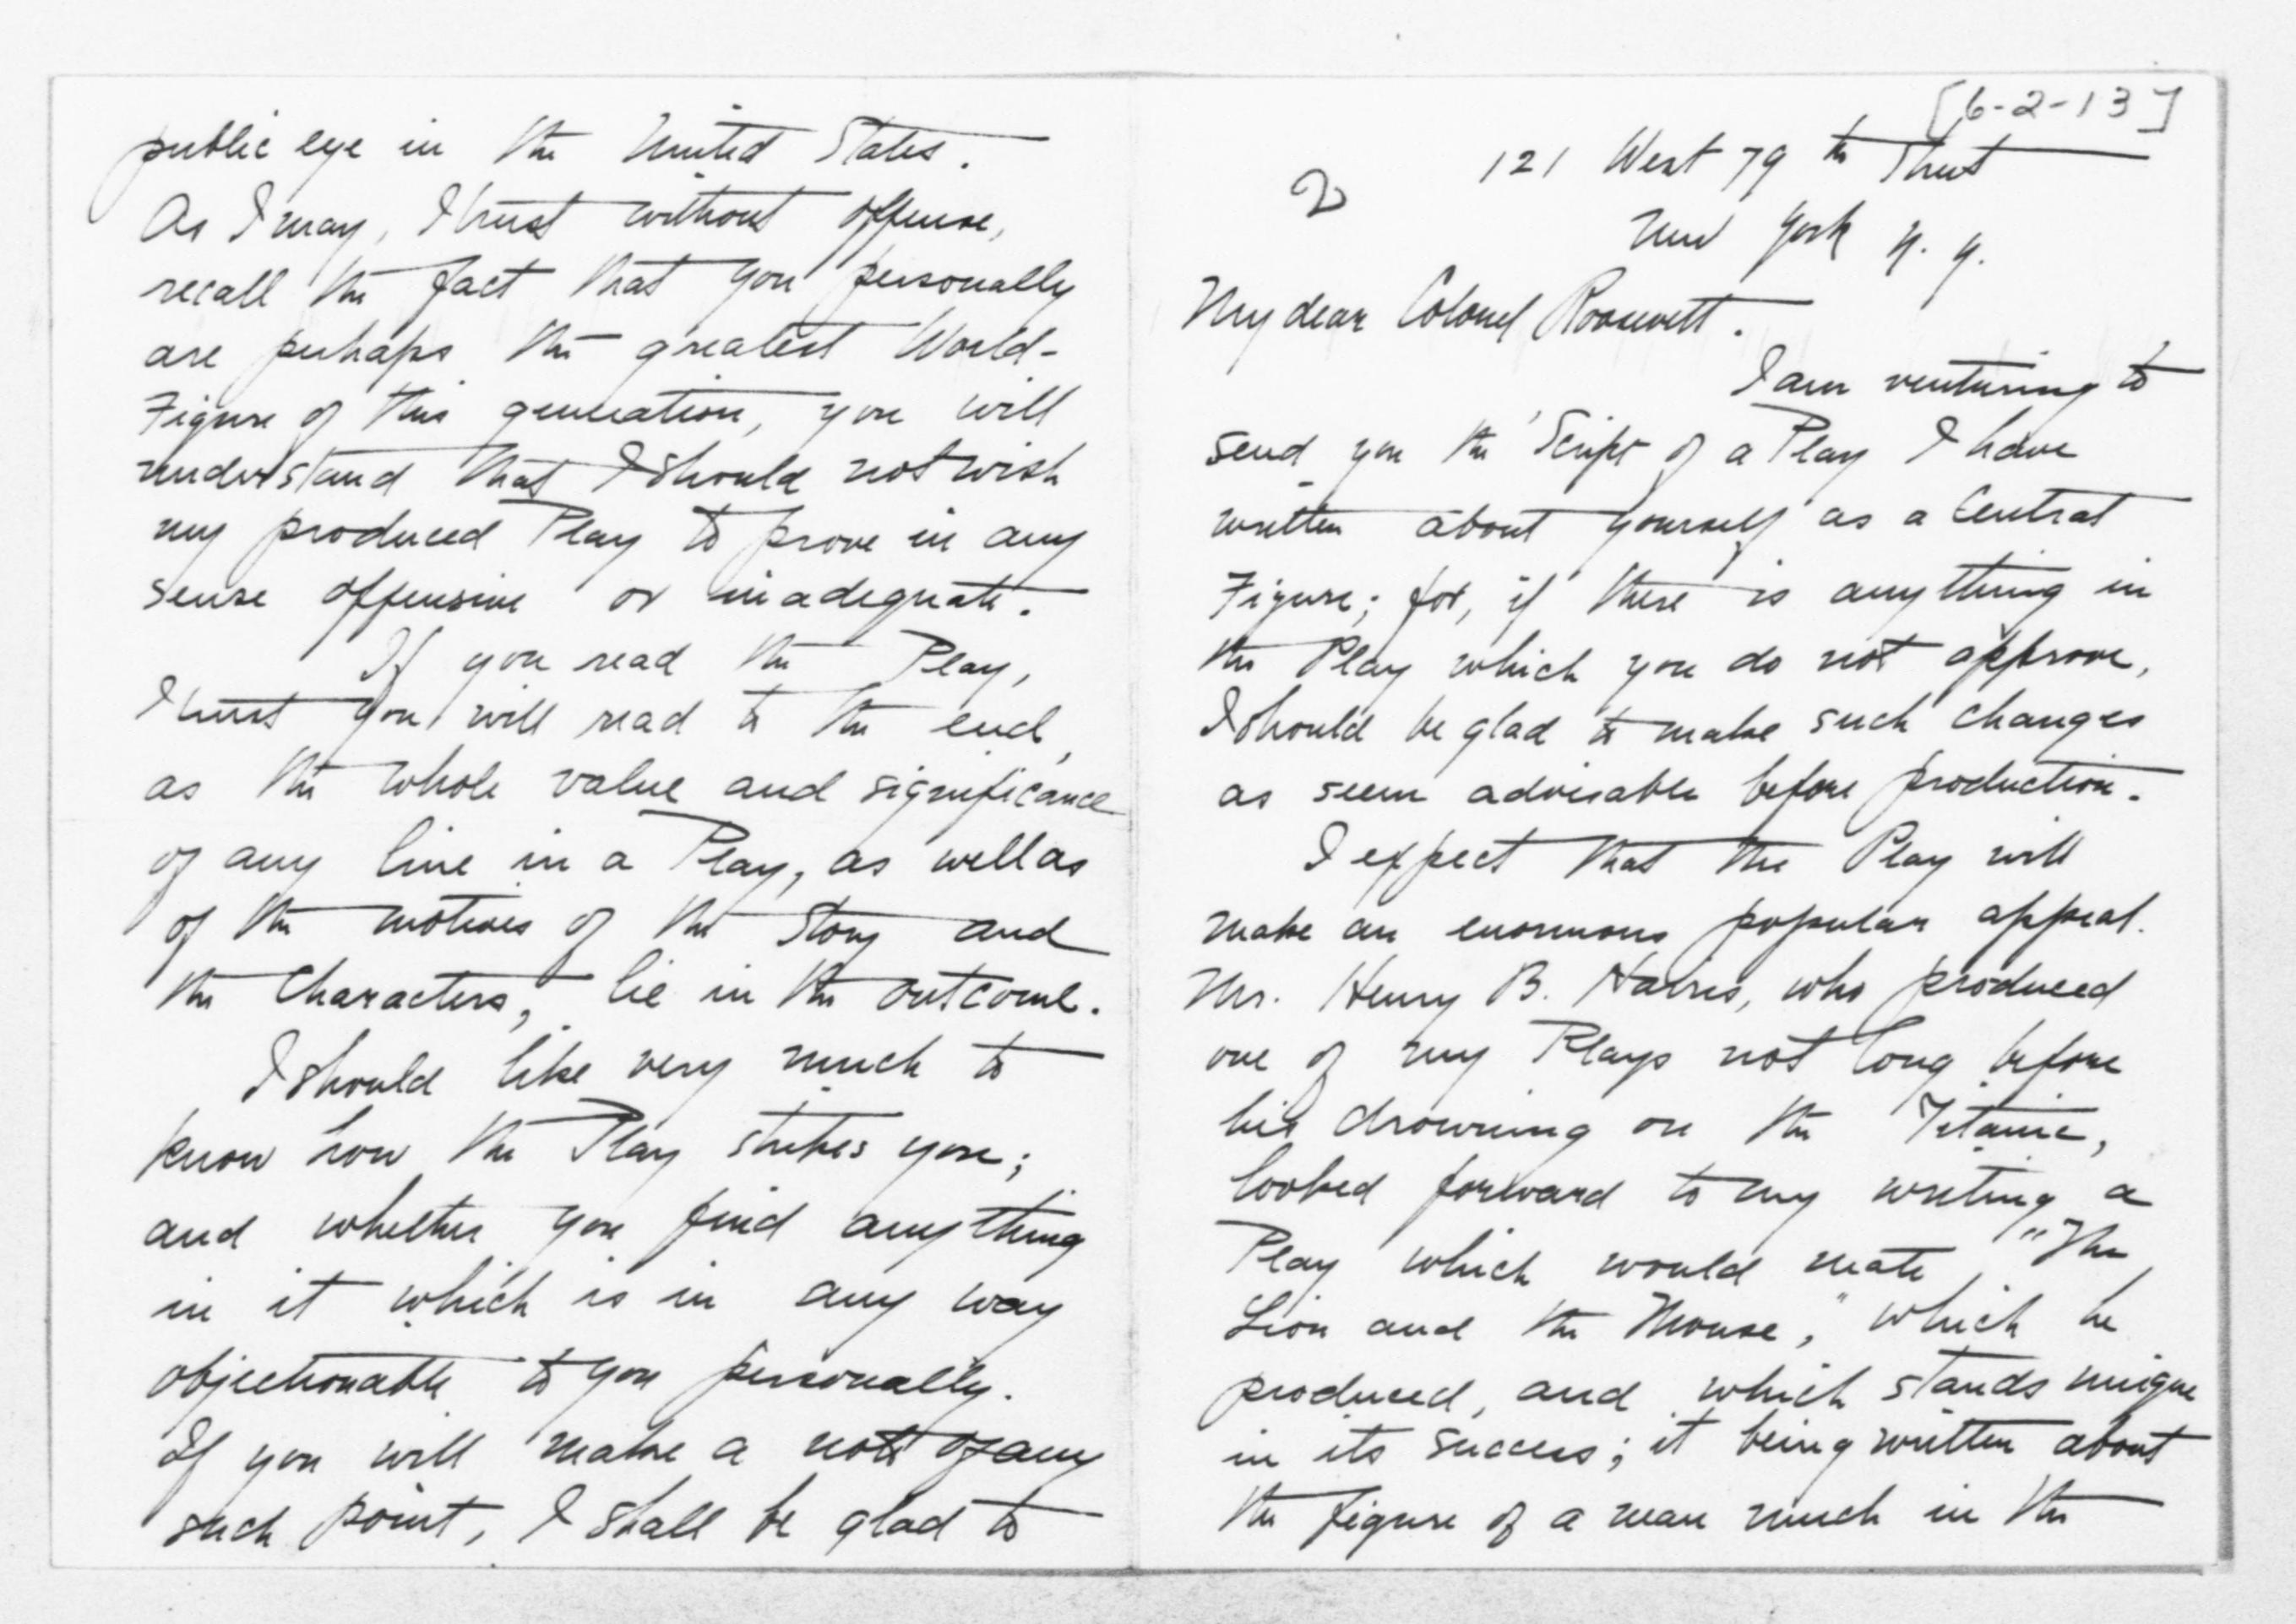 [6-2-13]
2
121 West 79th Street
New York N. Y.
My dear Colonel Roosevelt.
I am venturing to
send you the Script of a Play I have
written about yourself as a Central
Figure; for, if there is anything in
the Play which you do not approve,
I should be glad to make such changes
as seem advisable before production.
I expect that the Play will
make an enormous popular appeal.
Mr. Henry B. Harris, who produced
one of my Plays not long before
his drowning on the Titanic,
looked forward to my writing a
Play which would mate "The
Lion and the Mouse," which he
produced, and which stands unique
in its success; it being written about
the figure of a man much in the
public eye in the United States.
As I may, I trust without offense,
recall the fact that you personally
are perhaps the greatest World-
Figure of this generation, you will
understand that I should not wish
my produced Play to prove in any
sense offensive or inadequate.
If you read the Play,
I trust you will read to the end,
as the whole value and significance
of any line in a Play, as well as
of the motives of the Story and
the Characters, lie in the outcome.
I should like very much to
know how the Play strikes you;
and whether you find anything
in it which is in any way
objectionable to you personally.
If you will make a note of any
such point, I shall be glad to